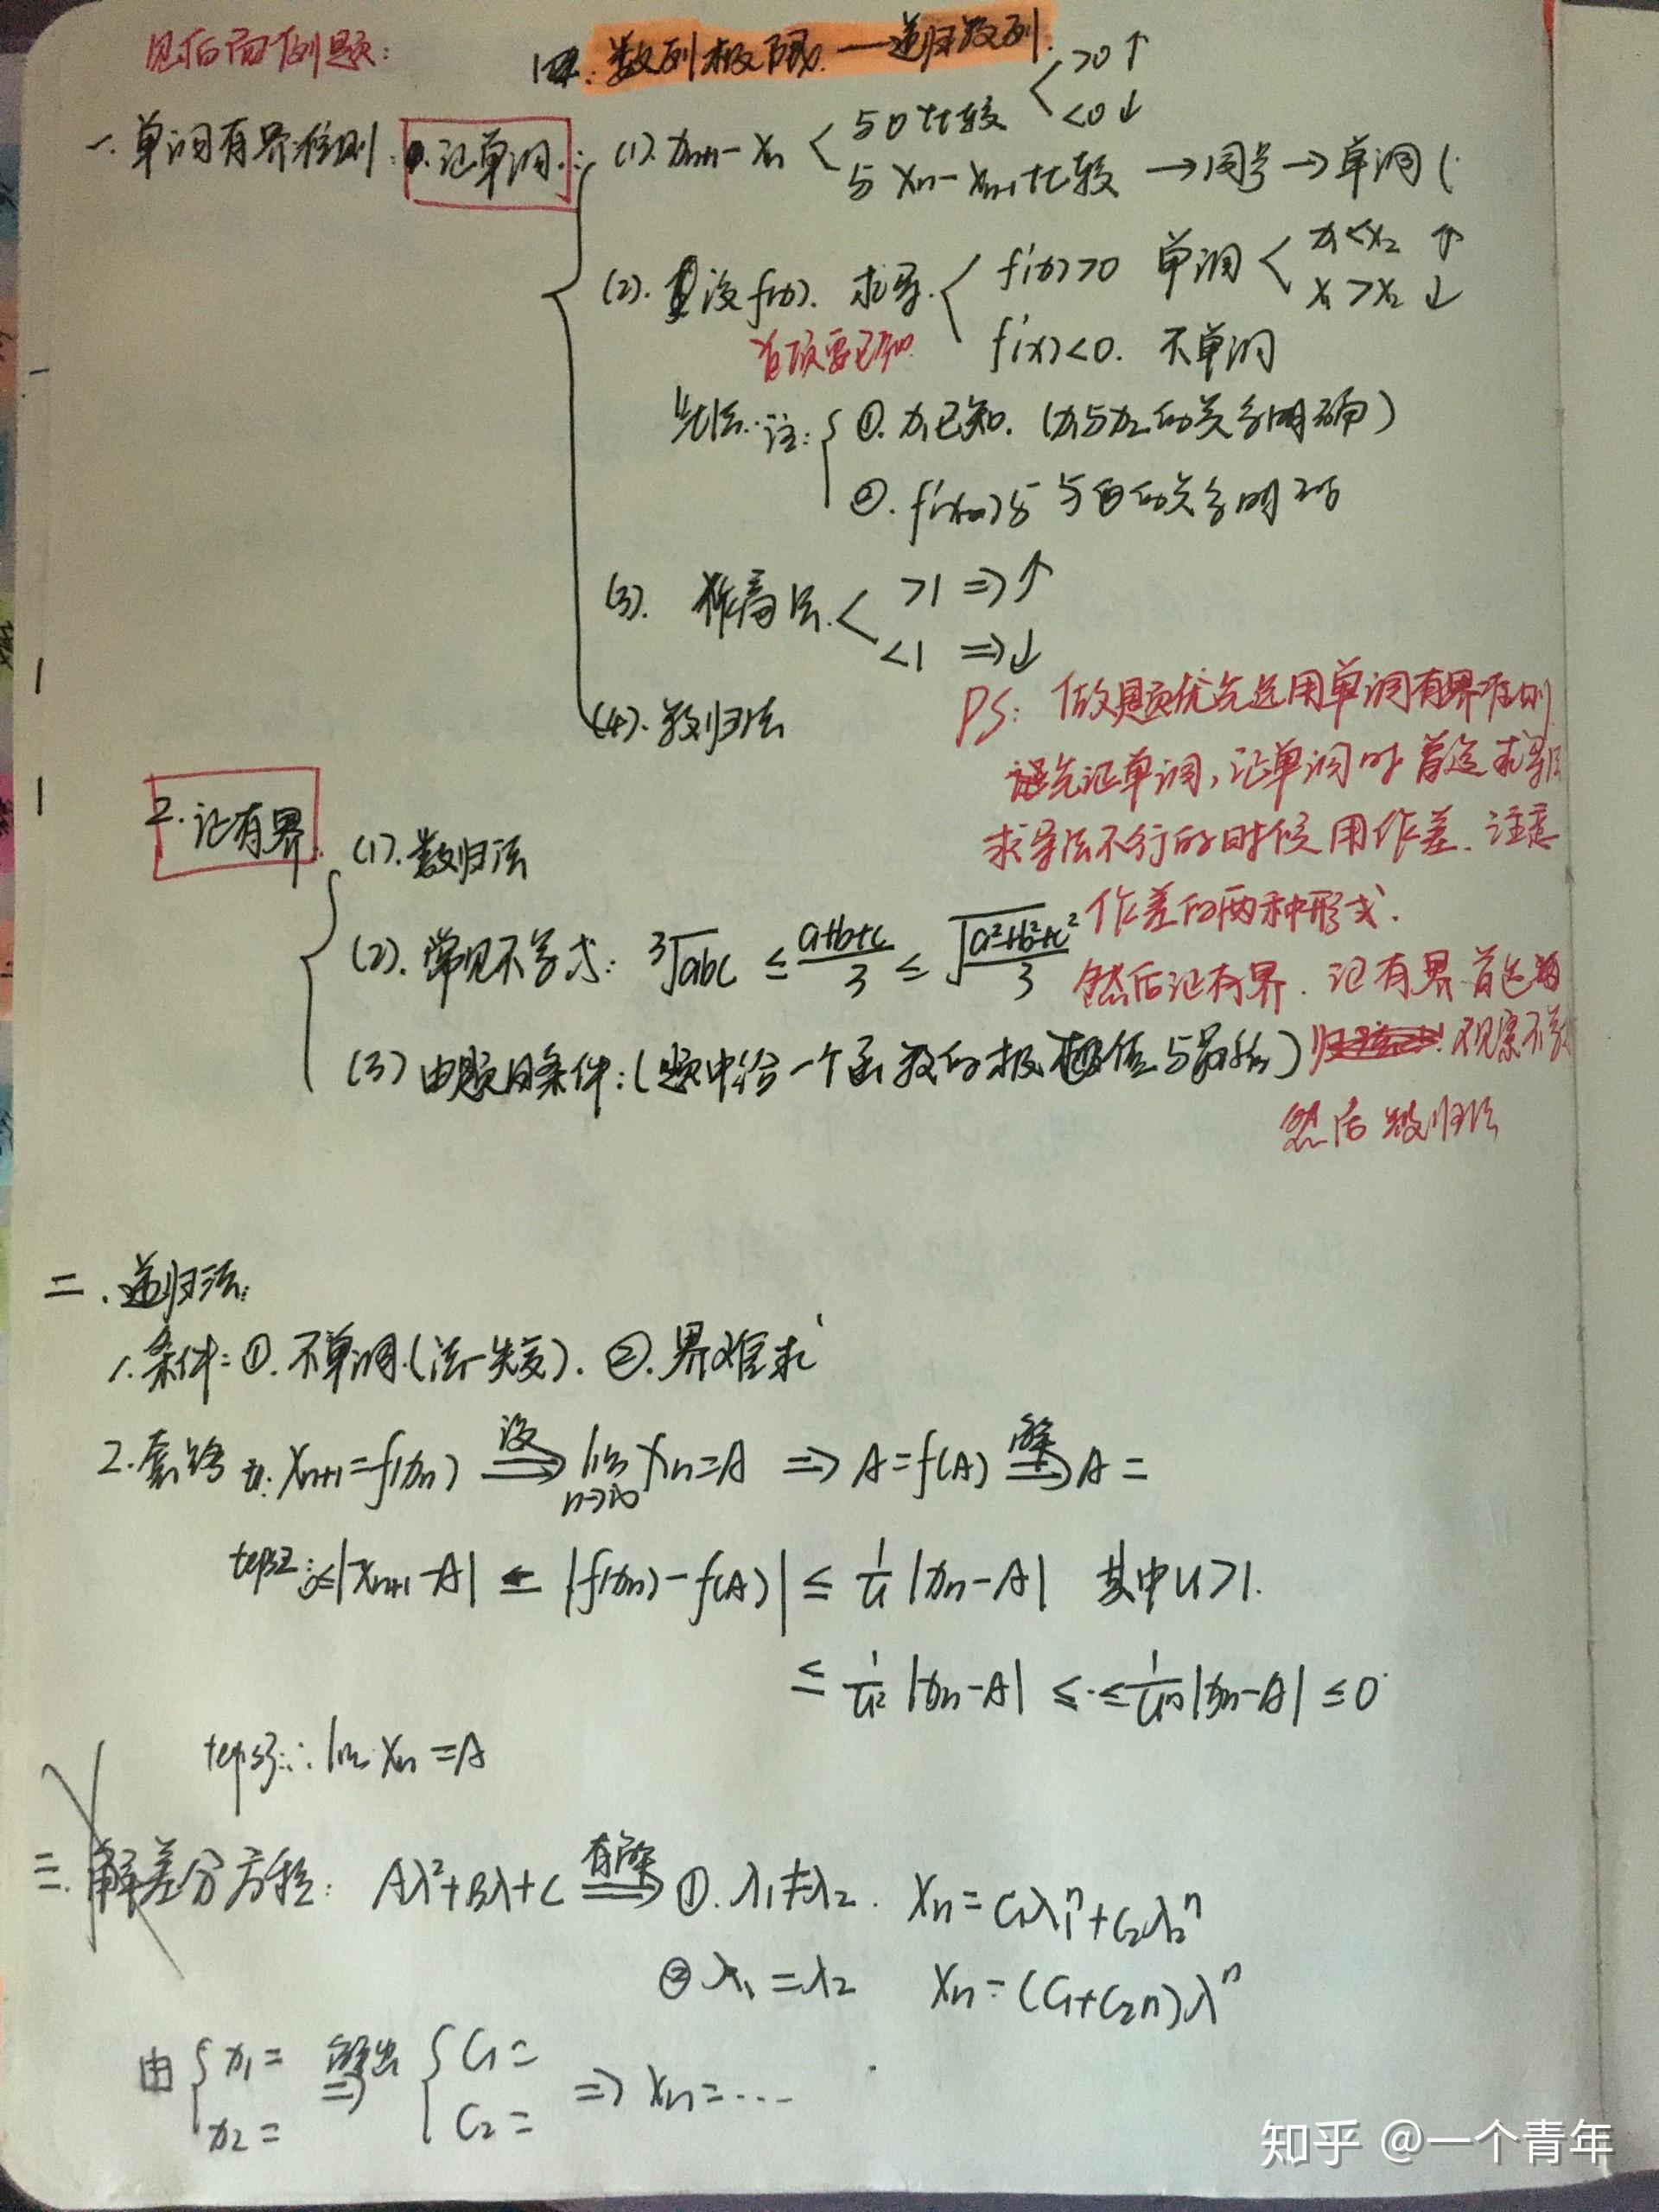 见后面例题:
四. 数列极限 — 递归数列.
一. 单调有界准则: 1. 证单调:
(1). xn+1 - xn < 与0比较 < >0 ↑ <0 ↓
与 xn - xn-1 比较 → 同号 → 单调 (
(2). 设 f(x). 求导. f'(x)>0 单调 < x1<x2 ↑
x1>x2 ↓
首项要已知
f'(x)<0. 不单调
注: { ①. x1已知. (x1与x2的关系明确)
②.
(3). 作商法. < >1 ⇒ ↑
<1 ⇒ ↓
(4). 数归法
PS: 做题优先选用单调有界准则
先证单调, 证单调时首选求导法
求导法不行的时候用作差. 注意
作差的两种形式.
然后证有界. 证有界首选
观察不等
然后数归法
2. 证有界.
(1). 数归法
(2). 常见不等式: ³√abc ≤ (a+b+c)/3 ≤ √((a²+b²+c²)/3)
(3) 由题目条件: (题中给一个函数的极值与最值)
二. 递归法:
1. 条件: ①. 不单调 (法一失效). ②. 界难求
2. 套路 xn+1 = f(xn) ⇒(设) lim n→∞ xn = A ⇒ A = f(A) ⇒(解) A =
teps2: 0≤|xn+1 - A| = |f(xn) - f(A)| ≤ 1/u |xn - A| 其中u>1.
≤ 1/u² |xn - A| ≤ ·· ≤ 1/uⁿ |xn - A| ≤ 0
teps3: ∴ lim xn = A
三. 解差分方程: Aλ²+Bλ+C ⇒(有解) ①. λ1≠λ2. xn = C1λ1ⁿ + C2λ2ⁿ
② λ1=λ2 xn = (C1+C2n)λⁿ
由 { x1= x2= ⇒(解出) { C1= C2= ⇒ xn = ...
知乎 @一个青年